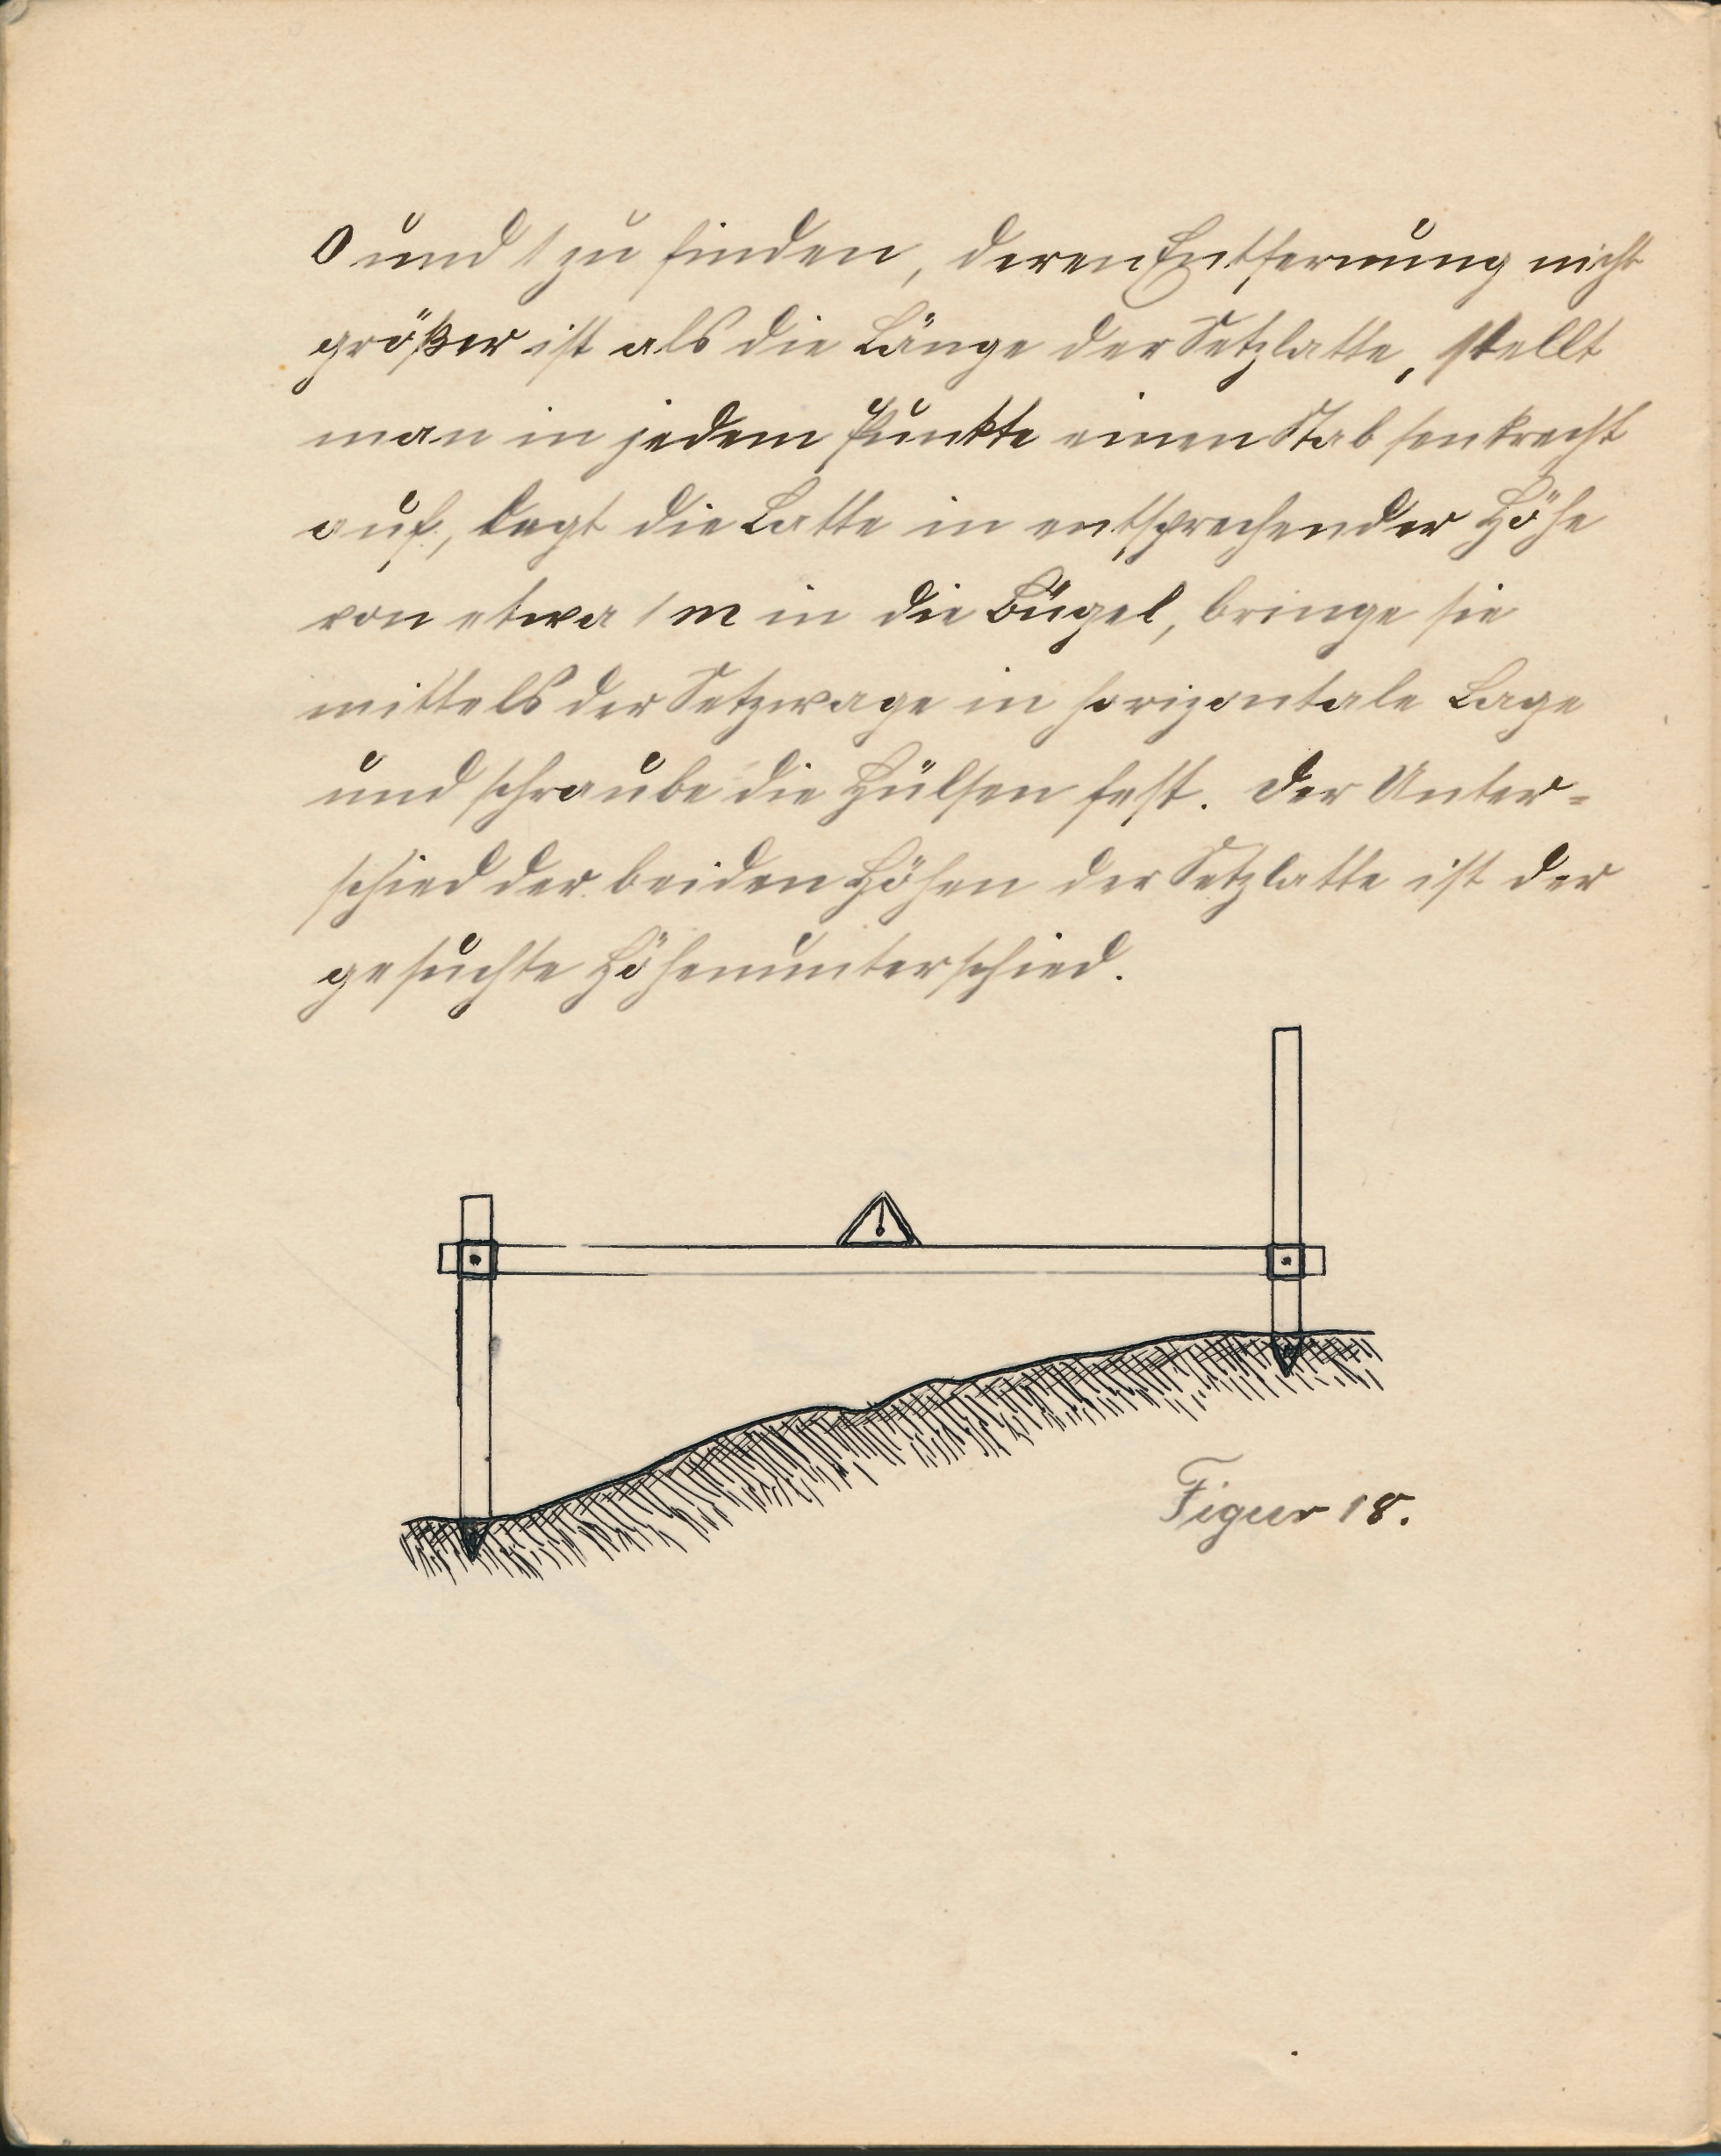 0 und 1 zu finden, deren Entfernung nicht
größer ist als die Länge der Setzlatte, stellt
man in jedem Punkte einen Stab senkrecht
auf, legt die Latte in entsprechender Höhe
von etwa 1 m in die Bügel, bringe sie
mittels der Setzwage in horizontale Lage
und schraube die Hülsen fest. Der Unter-
schied der beiden Höhen der Setzlatte ist der
gesuchte Höhenunterschied.
Figur 18.